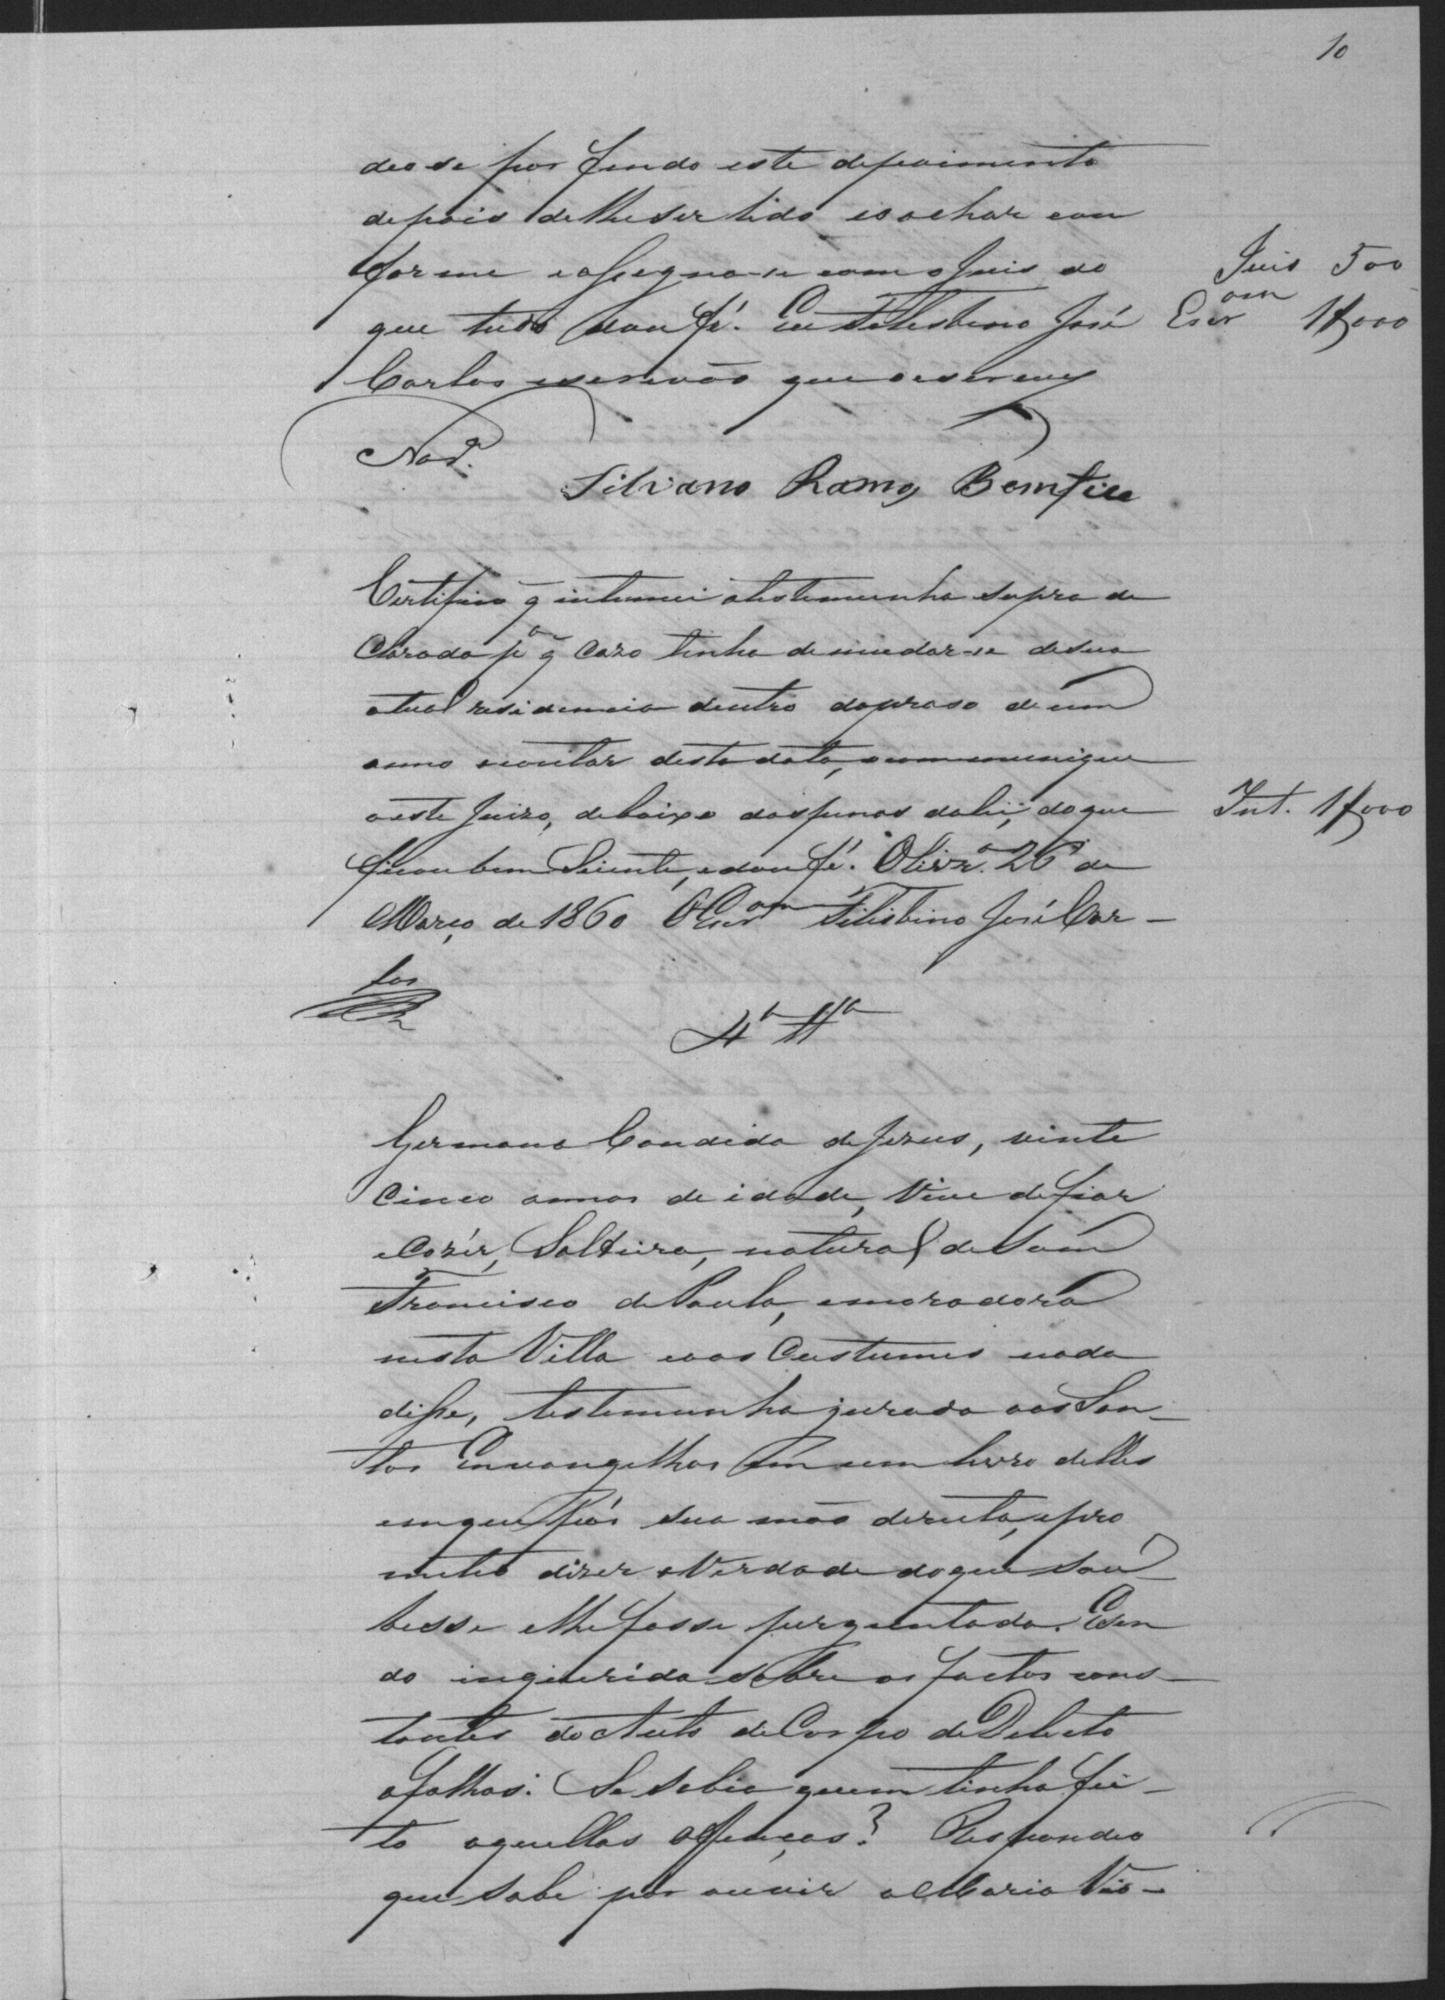 10
deo se por findo este depoimento
depois de lhe ser lido e o achar con
forme e assigna-se com o Juis do
Juis 500
que tudo dou fé. Eu Felisbino José
Escr.am 1$000
Carlos escrivão que o escrevy
Silvano Ramos Bemfica
Certifico q̃ intimei a testemunha supra de
clarada p.a q̃ cazo tenha de mudar-se de sua
atual residencia dentro do praso de um
anno a contar desta data, o communique
a este Juizo, debaixo das penas da lei, do que
Int. 1$000
ficou bem Siente, e dou fé. Olivr.a 26 de
Março de 1860 O Escr.am Felisbino José Car-
los
4.a T.a
Germana Candida de Jezus, vinte
Cinco annos de idade, Vive de fiar
e Cozêr, Solteira, natural de Sam
Francisco de Paula, e moradora
nesta Villa e aos Custumes nada
disse, testemunha jurada aos San-
tos Envangelhos em um livro delles
em que pôs sua mão direita, e pro
meteo dizer a Verdade do que sou-
besse e lhe fosse perguntada. E sen
do inquerida sobre os factos cons-
tantes do Auto de Corpo de Delicto
a folhas: Se sabia quem tinha fei-
to aquellas offenças? Respondeo
que sabe por ouvir a Maria Vio-